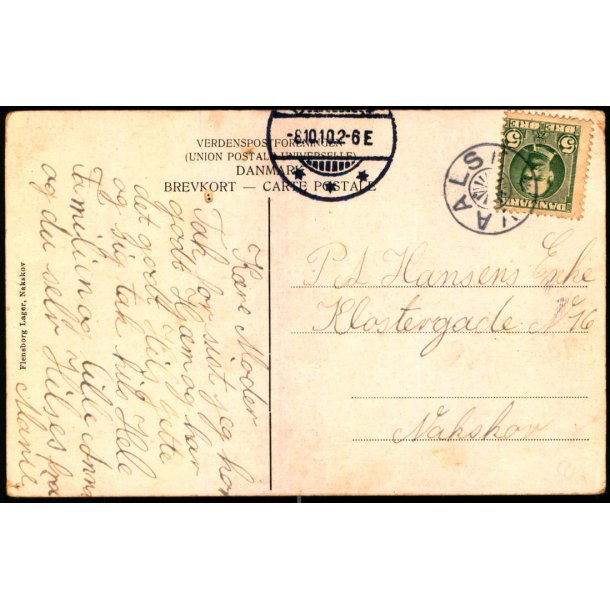 VERDENSPOSTFORENINGEN
(UNION POSTALE UNIVERSELLE)
DANMARK
BREVKORT — CARTE POSTALE
-8.10.10.2-6 E
VAALS
5 ØRE 5 ØRE
DANMARK
Kære Moder
Tak for sist jeg kom
godt Hjem og har
det godt
og sig tak hils Hele
Familien og lille Anna
og du selv Hilses fra
Marie
P.A. Hansens Enke
Klostergade No 16
Nakskov
Flensborg Lager, Nakskov